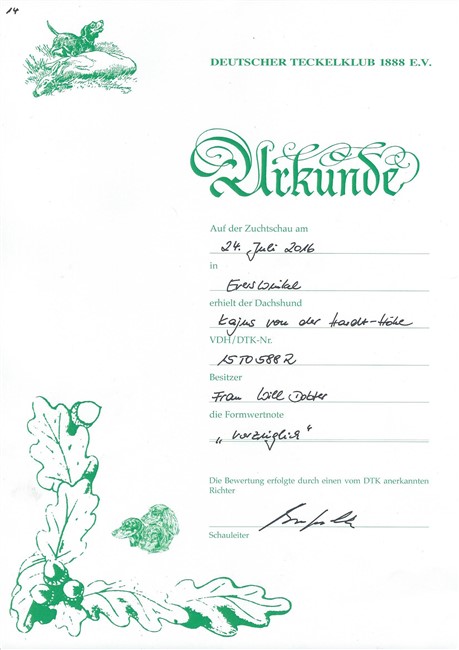 14
DEUTSCHER TECKELKLUB 1888 E.V.
Urkunde
Auf der Zuchtschau am
24. Juli 2016
in
Everswinkel
erhielt der Dachshund
Kajus von der Hardt-Höhe
VDH/DTK-Nr.
15T0588R
Besitzer
Frau Will
die Formwertnote
„vorzüglich"
Die Bewertung erfolgte durch einen vom DTK anerkannten
Richter
Schauleiter